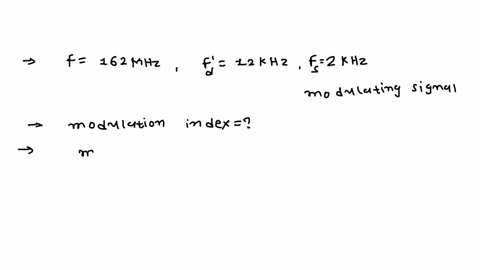 → f = 162 MHz , f'd = 12 KHz , fs = 2 KHz
modulating signal
→ modulation index = ?
→ m